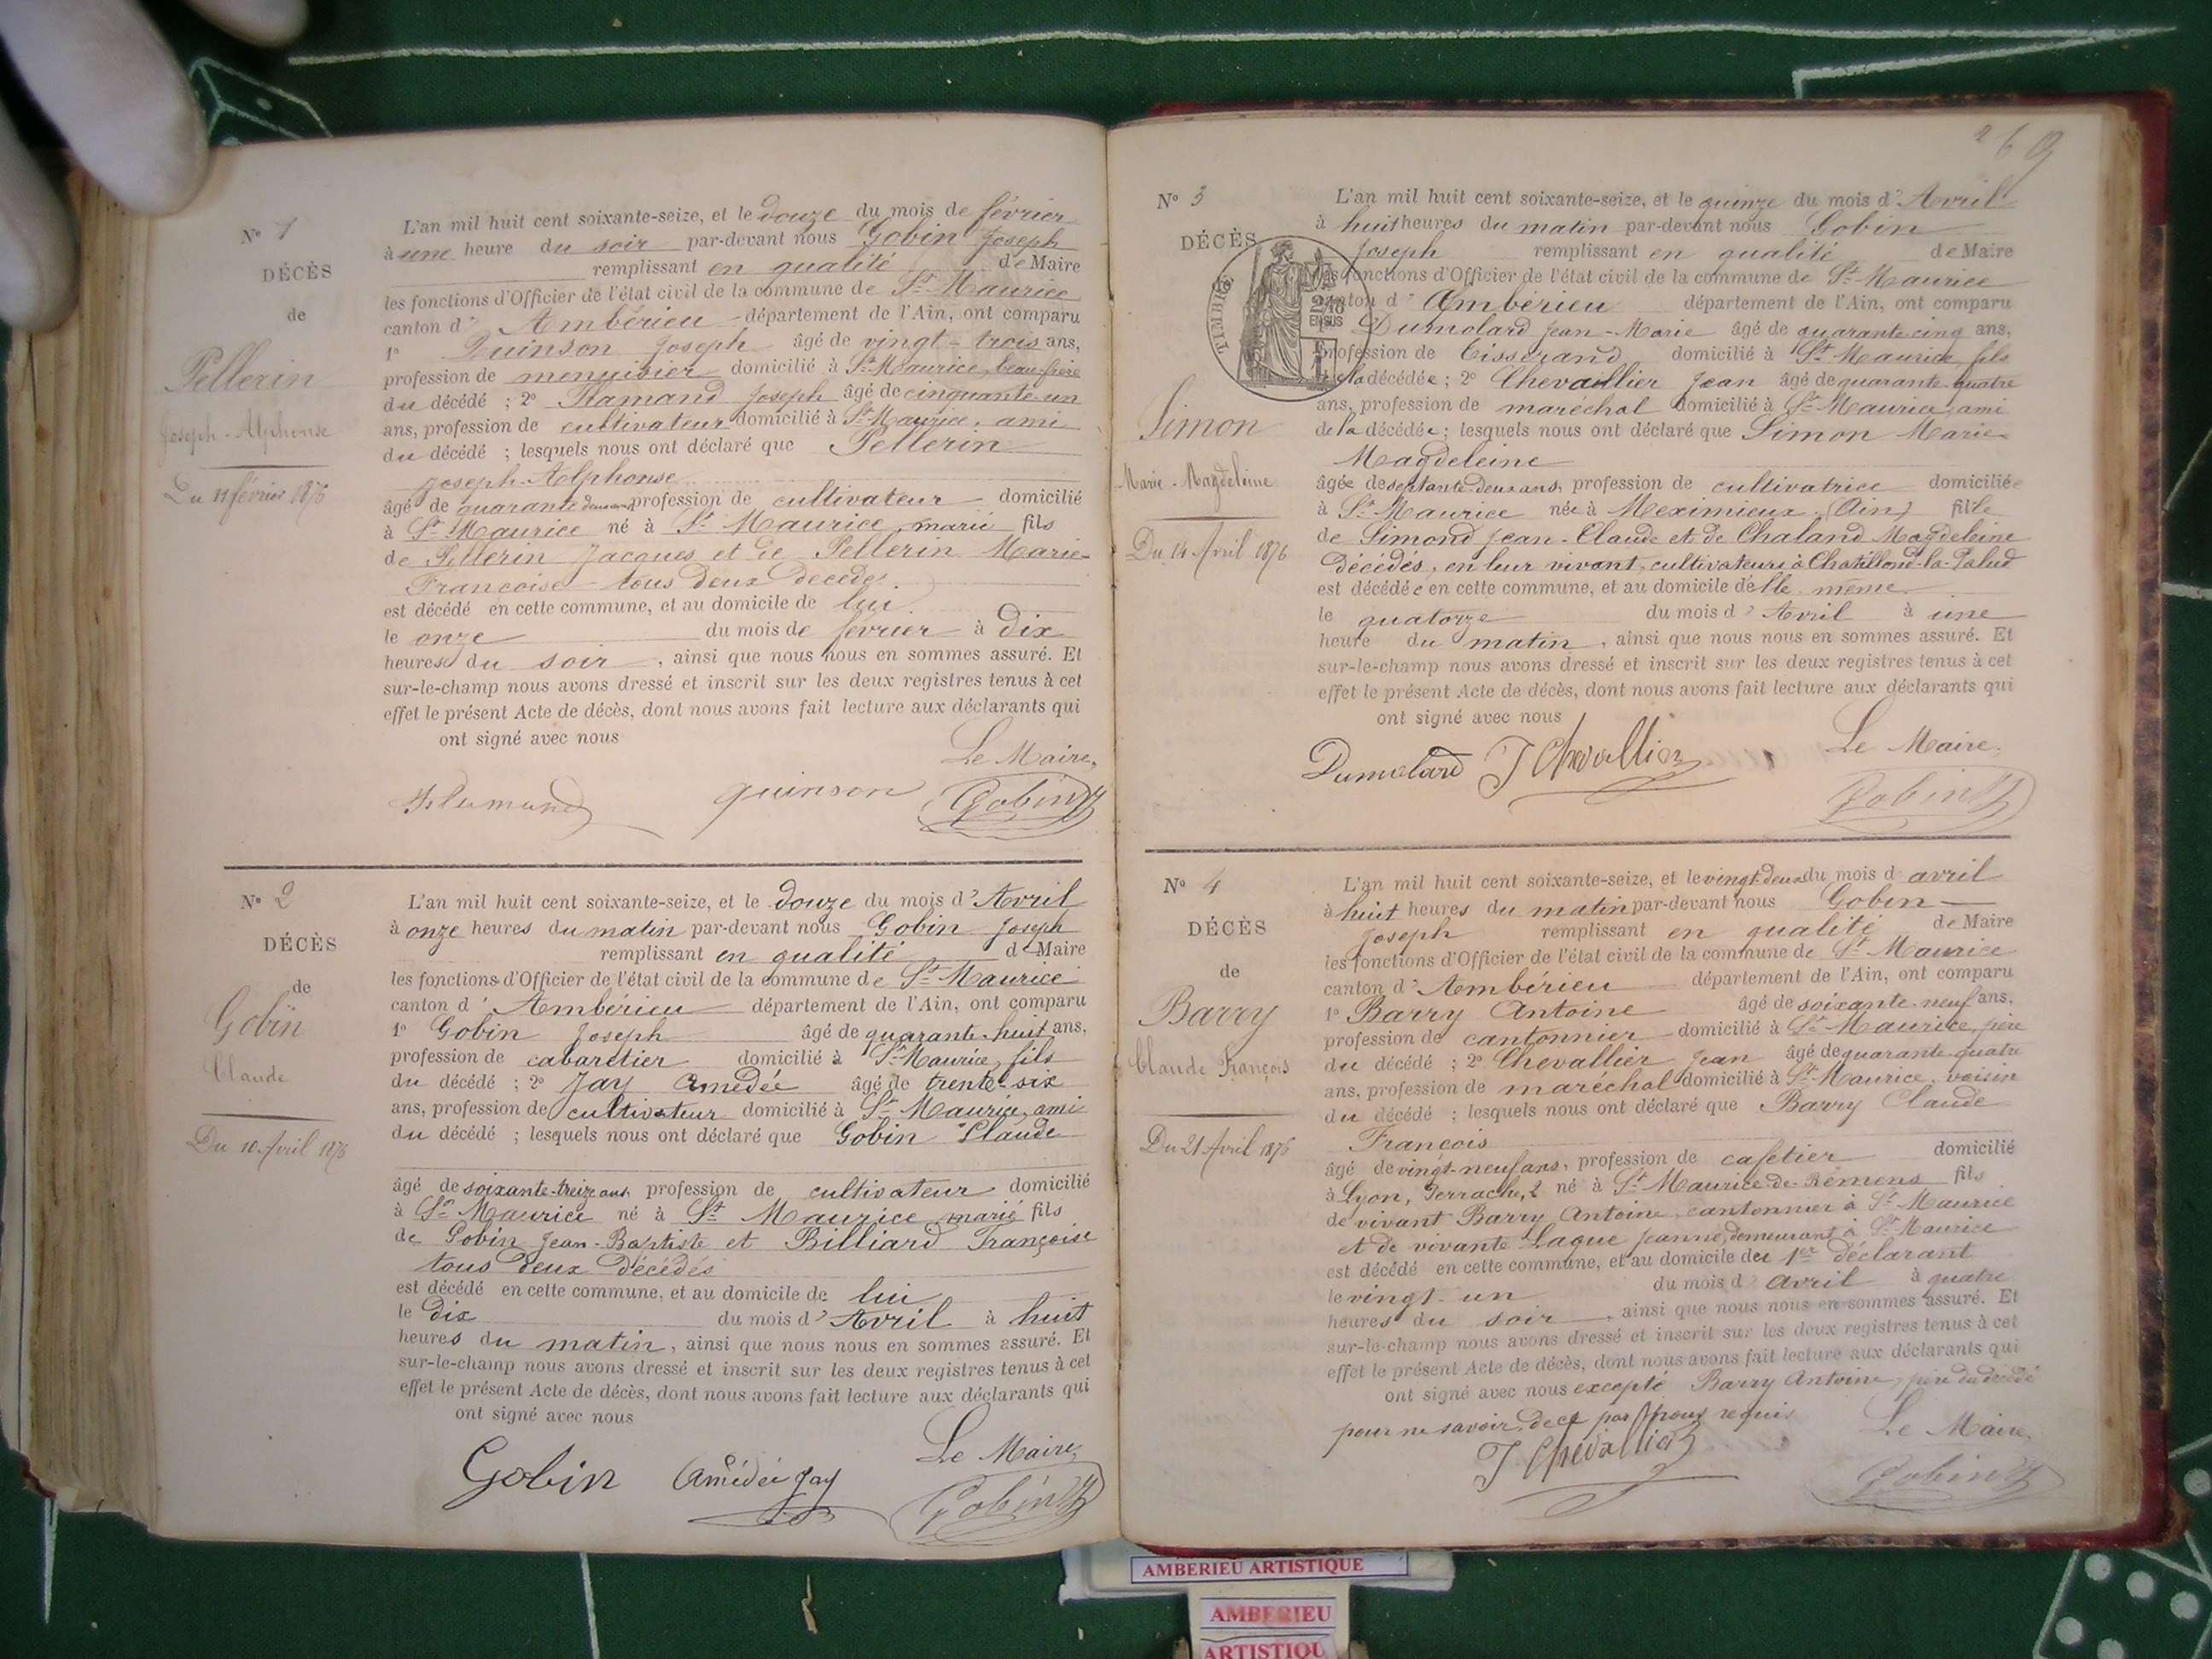 N° 1
DÉCÈS
de
Pellerin
Joseph-Alphonse
Du 11 février 1876
L'an mil huit cent soixante-seize, et le douze du mois de février
à une heure du soir par-devant nous Gobin Joseph
remplissant en qualité de Maire
les fonctions d'Officier de l'état civil de la commune de St Maurice
canton d' Ambérieu département de l'Ain, ont comparu
1° Quinson Joseph âgé de vingt-trois ans,
profession de menuisier domicilié à St Maurice, beau-frère
du décédé ; 2° Flamand Joseph âgé de cinquante-un
ans, profession de cultivateur domicilié à St Maurice, ami
du décédé ; lesquels nous ont déclaré que Pellerin
Joseph-Alphonse
âgé de quarante deux ans profession de cultivateur domicilié
à St Maurice né à St Maurice, marié fils
de Pellerin Jacques et de Pellerin Marie-
Françoise tous deux décédés.
est décédé en cette commune, et au domicile de lui.
le onze du mois de février à dix
heures du soir, ainsi que nous nous en sommes assuré. Et
sur-le-champ nous avons dressé et inscrit sur les deux registres tenus à cet
effet le présent Acte de décès, dont nous avons fait lecture aux déclarants qui
ont signé avec nous
Le Maire,
Flamand quinson Gobin
N° 2
DÉCÈS
de
Gobin
Claude
Du 10 Avril 1876
L'an mil huit cent soixante-seize, et le douze du mois d' Avril
à onze heures du matin par-devant nous Gobin Joseph
remplissant en qualité d Maire
les fonctions d'Officier de l'état civil de la commune de St Maurice
canton d' Ambérieu département de l'Ain, ont comparu
1° Gobin Joseph âgé de quarante-huit ans,
profession de cabaretier domicilié à St Maurice, fils
du décédé ; 2° Jay Amédée âgé de trente-six
ans, profession de cultivateur domicilié à St Maurice, ami
du décédé ; lesquels nous ont déclaré que Gobin Claude
âgé de soixante-treize ans, profession de cultivateur domicilié
à St Maurice né à St Maurice marié fils
de Gobin Jean-Baptiste et Billiard Françoise
tous deux décédés
est décédé en cette commune, et au domicile de lui
le dix du mois d' Avril à huit
heures du matin, ainsi que nous nous en sommes assuré. Et
sur-le-champ nous avons dressé et inscrit sur les deux registres tenus à cet
effet le présent Acte de décès, dont nous avons fait lecture aux déclarants qui
ont signé avec nous
Le Maire,
Gobin Amédée Jay Gobin
269
N° 3
DÉCÈS
TIMBRE
2/10
EN SUS
Simon
Marie-Magdeleine
Du 14 Avril 1876
L'an mil huit cent soixante-seize, et le quinze du mois d' Avril
à huit heures du matin par-devant nous Gobin
Joseph remplissant en qualité de Maire
les fonctions d'Officier de l'état civil de la commune de St Maurice
canton d' Ambérieu département de l'Ain, ont comparu
Dumolard Jean-Marie âgé de quarante cinq ans,
profession de Tisserand domicilié à St Maurice, fils
de la décédée ; 2° Chevallier Jean âgé de quarante-quatre
ans, profession de maréchal domicilié à St Maurice, ami
de la décédée ; lesquels nous ont déclaré que Simon Marie-
Magdeleine
âgée de septante-deux ans, profession de cultivatrice domiciliée
à St Maurice née à Meximieux (Ain) fille
de Simond Jean-Claude et de Chaland Magdeleine
décédés, en leur vivant, cultivateurs à Chatillond-la-Palud
est décédée en cette commune, et au domicile d'elle même
le quatorze du mois d' Avril à une
heure du matin, ainsi que nous nous en sommes assuré. Et
sur-le-champ nous avons dressé et inscrit sur les deux registres tenus à cet
effet le présent Acte de décès, dont nous avons fait lecture aux déclarants qui
ont signé avec nous
Le Maire,
Dumolard J Chevallier Gobin
N° 4
DÉCÈS
de
Barry
Claude François
Du 21 Avril 1876
L'an mil huit cent soixante-seize, et le vingt-deux du mois d avril
à huit heures du matin par-devant nous Gobin
Joseph remplissant en qualité de Maire
les fonctions d'Officier de l'état civil de la commune de St Maurice
canton d' Ambérieu département de l'Ain, ont comparu
1° Barry Antoine âgé de soixante-neuf ans,
profession de cantonnier domicilié à St Maurice, père
du décédé ; 2° Chevallier Jean âgé de quarante-quatre
ans, profession de maréchal domicilié à St Maurice, voisin
du décédé ; lesquels nous ont déclaré que Barry Claude
François
âgé de vingt-neuf ans, profession de cafetier domicilié
à Lyon, Perrache, 2 né à St Maurice-de-Rémens fils
de vivant Barry Antoine, cantonnier à St Maurice
et de vivante Laque Jeanne, demeurant à St Maurice
est décédé en cette commune, et au domicile du 1er déclarant
le vingt-un du mois d avril à quatre
heures du soir, ainsi que nous nous en sommes assuré. Et
sur-le-champ nous avons dressé et inscrit sur les deux registres tenus à cet
effet le présent Acte de décès, dont nous avons fait lecture aux déclarants qui
ont signé avec nous excepté Barry Antoine, père du décédé
pour ne savoir, de ce par nous requis
Le Maire,
J Chevallier Gobin
AMBERIEU ARTISTIQUE
AMBERIEU
ARTISTIQU